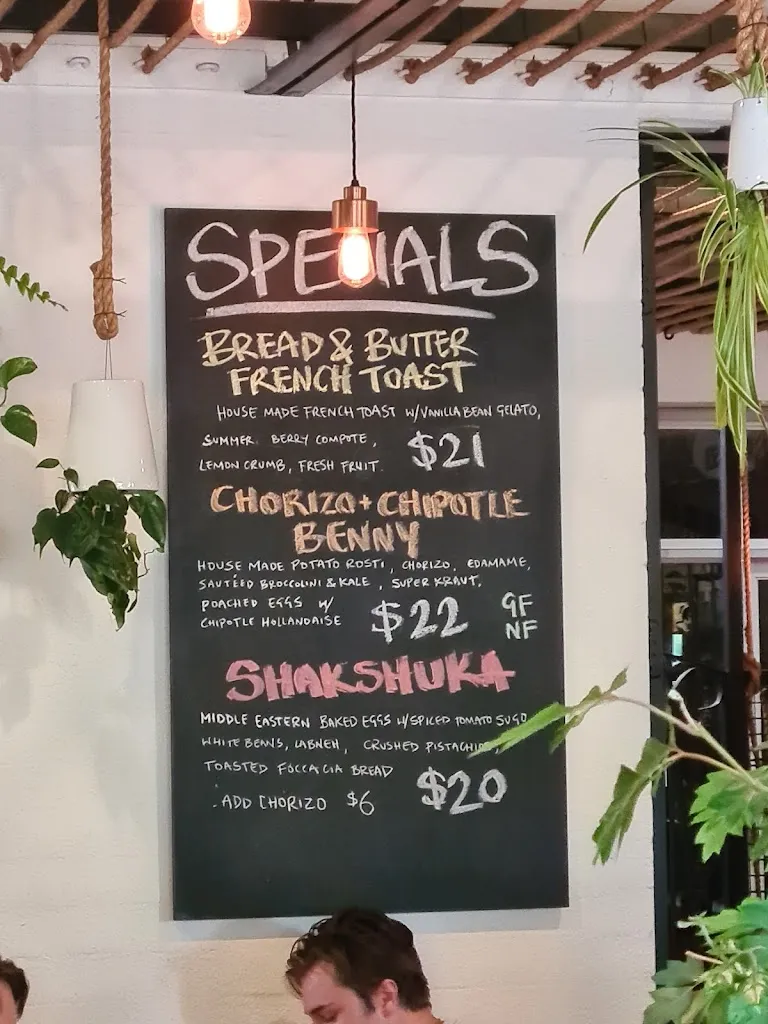 SPECIALS
BREAD & BUTTER
FRENCH TOAST
HOUSE MADE FRENCH TOAST W/VANILLA BEAN GELATO,
SUMMER BERRY COMPOTE,
LEMON CRUMB, FRESH FRUIT. $21
CHORIZO + CHIPOTLE
BENNY
HOUSE MADE POTATO ROSTI, CHORIZO, EDAMAME,
SAUTÉED BROCCOLINI & KALE, SUPER KRAUT,
POACHED EGGS W/
CHIPOTLE HOLLANDAISE $22 GF
NF
SHAKSHUKA
MIDDLE EASTERN BAKED EGGS W/SPICED TOMATO SUGO
WHITE BEANS, LABNEH, CRUSHED PISTACHIOS,
TOASTED FOCCACIA BREAD
. ADD CHORIZO $6 $20